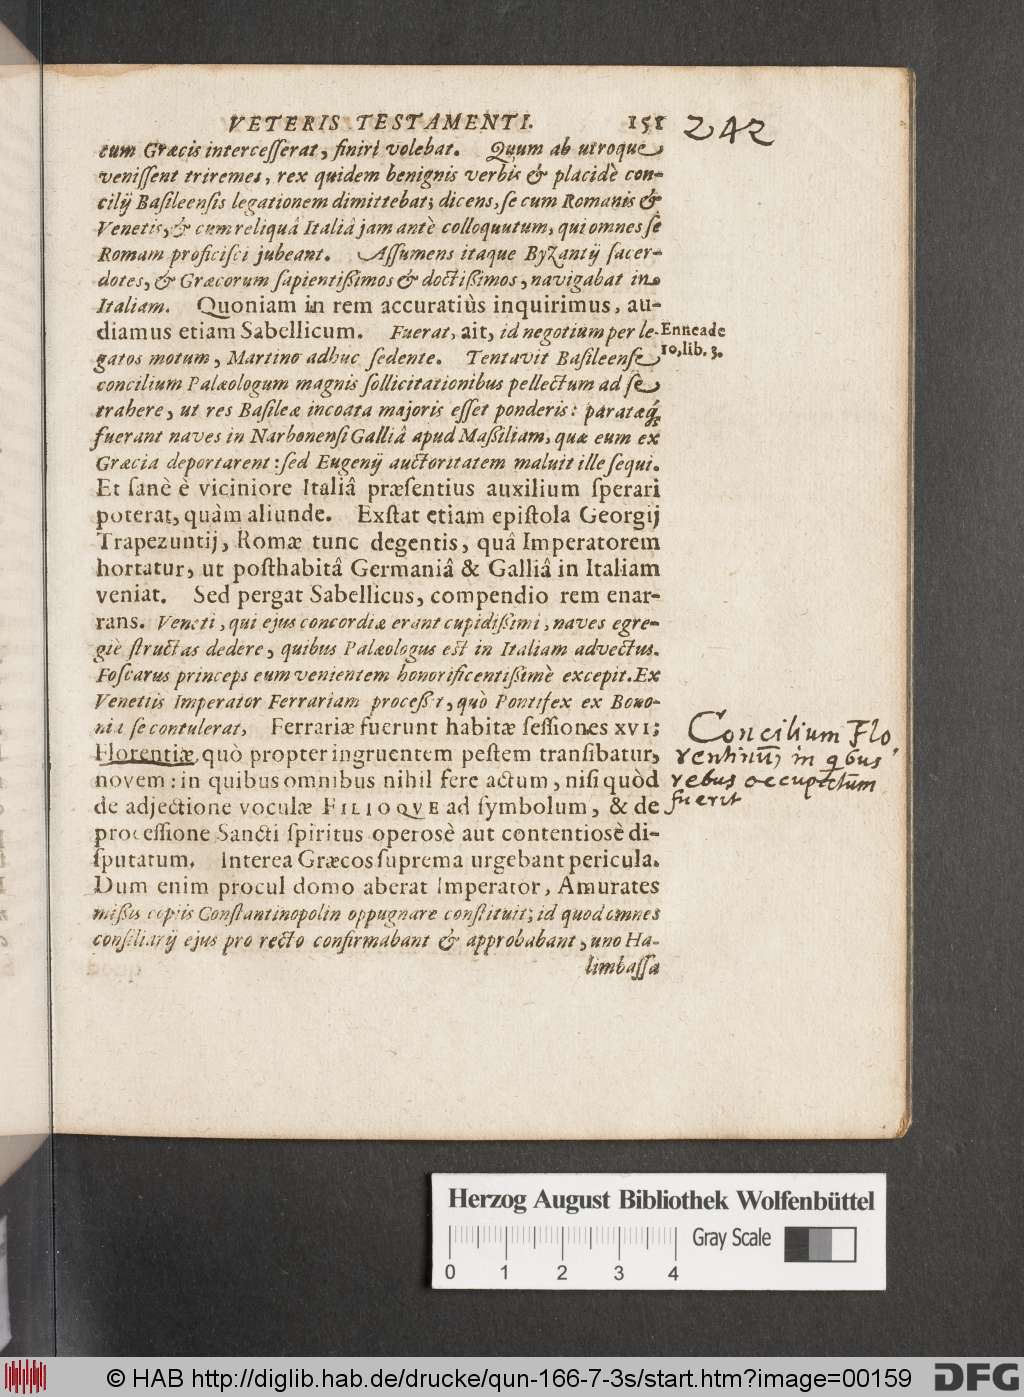 VETERIS TESTAMENTI. 151
242
cum Græcis intercesserat, finiri volebat. Quum ab utroque
venissent triremes, rex quidem benignis verbis & placidè con-
cilij Basileensis legationem dimittebat; dicens, se cum Romanis &
Venetis, & cum reliquâ Italiâ jam antè colloquutum, qui omnes se
Romam proficisci jubeant. Assumens itaque Byzantij sacer-
dotes, & Græcorum sapientißimos & doctißimos, navigabat in
Italiam. Quoniam in rem accuratiùs inquirimus, au-
diamus etiam Sabellicum. Fuerat, ait, id negotium per le-
Enneade
10, lib. 3.
gatos motum, Martino adhuc sedente. Tentavit Basileense
concilium Palæologum magnis sollicitationibus pellectum ad se
trahere, ut res Basileæ incoata majoris esset ponderis: paratæq́;
fuerant naves in Narbonensi Galliâ apud Maßiliam, quæ eum ex
Græcia deportarent: sed Eugenij auctoritatem maluit ille sequi.
Et sanè è viciniore Italiâ præsentius auxilium sperari
poterat, quàm aliunde. Exstat etiam epistola Georgij
Trapezuntij, Romæ tunc degentis, quâ Imperatorem
hortatur, ut posthabitâ Germaniâ & Galliâ in Italiam
veniat. Sed pergat Sabellicus, compendio rem enar-
rans. Veneti, qui ejus concordiæ erant cupidißimi, naves egre-
giè structas dedere, quibus Palæologus est in Italiam advectus.
Foscarus princeps eum venientem honorificentißimè excepit. Ex
Venetiis Imperator Ferrariam proceßit, quò Pontifex ex Bono-
nia se contulerat, Ferrariæ fuerunt habitæ sessiones xvi;
Florentiæ, quò propter ingruentem pestem transibatur,
novem: in quibus omnibus nihil fere actum, nisi quòd
de adjectione voculæ FILIOQVE ad symbolum, & de
processione Sancti spiritus operosè aut contentiosè di-
sputatum. Interea Græcos suprema urgebant pericula.
Dum enim procul domo aberat Imperator, Amurates
mißis copiis Constantinopolin oppugnare constituit; id quod omnes
consiliarij ejus pro recto confirmabant & approbabant, uno Ha-
limbassa
Concilium Flo,
rentinū, in qbus
rebus occupatum
fuerit
Herzog August Bibliothek Wolfenbüttel
0 1 2 3 4
Gray Scale
© HAB http://diglib.hab.de/drucke/qun-166-7-3s/start.htm?image=00159
DFG